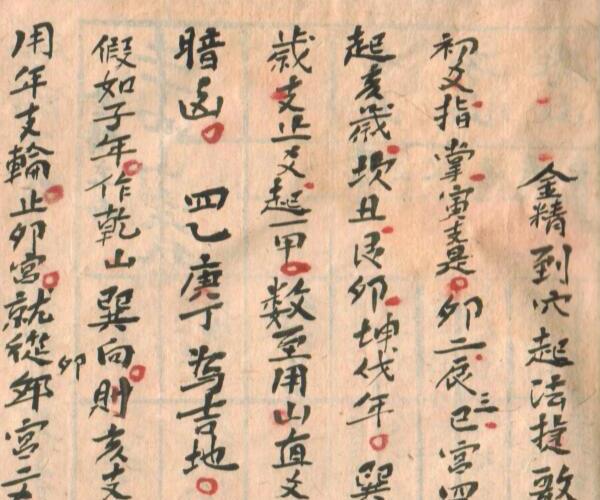 金精到穴起法捷
初爻指掌寅支是卯二辰三巳宮四
起亥歲坎丑艮卯坤伐年巽
歲支止爻起一甲数至用山直文
暗凶 四乙庚丁為吉地
假如子年作乾山巽向則亥支
用年支輪止卯宮就從卯宮